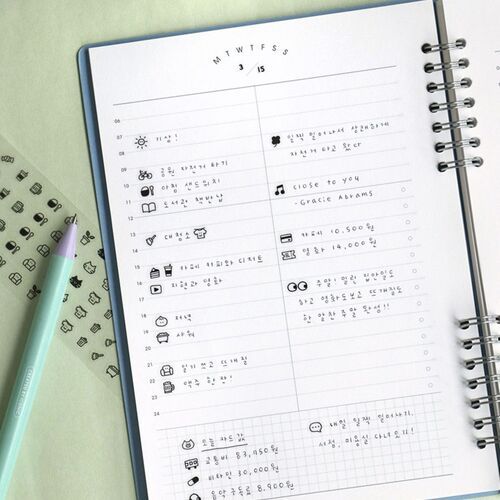 M T W T F S S
3 / 15
06
07
기상!
08
09
10
공원 자전거 타기
11
아침 샌드위치
12
도서관 책 반납
13
14
대청소
15
16
카페 커피와 디저트
17
지현과 영화
18
19
저녁
20
샤워
21
22
일기 쓰고 뜨개질
23
맥주 한 잔!
24
일찍 일어나서 상쾌하게
자전거 타고 왔다
close to you
-Gracie Abrams
카페 10,500원
영화 14,000원
주말! 밀린 집안일도
하고 영화도보고 뜨개질도
한 알찬 주말 완성!!
오늘 카드 값
교통비 83,750원
비타민 30,000원
음악 구독료 8,900원
내일 일찍 일어나기.
서점, 미용실 다녀오기!